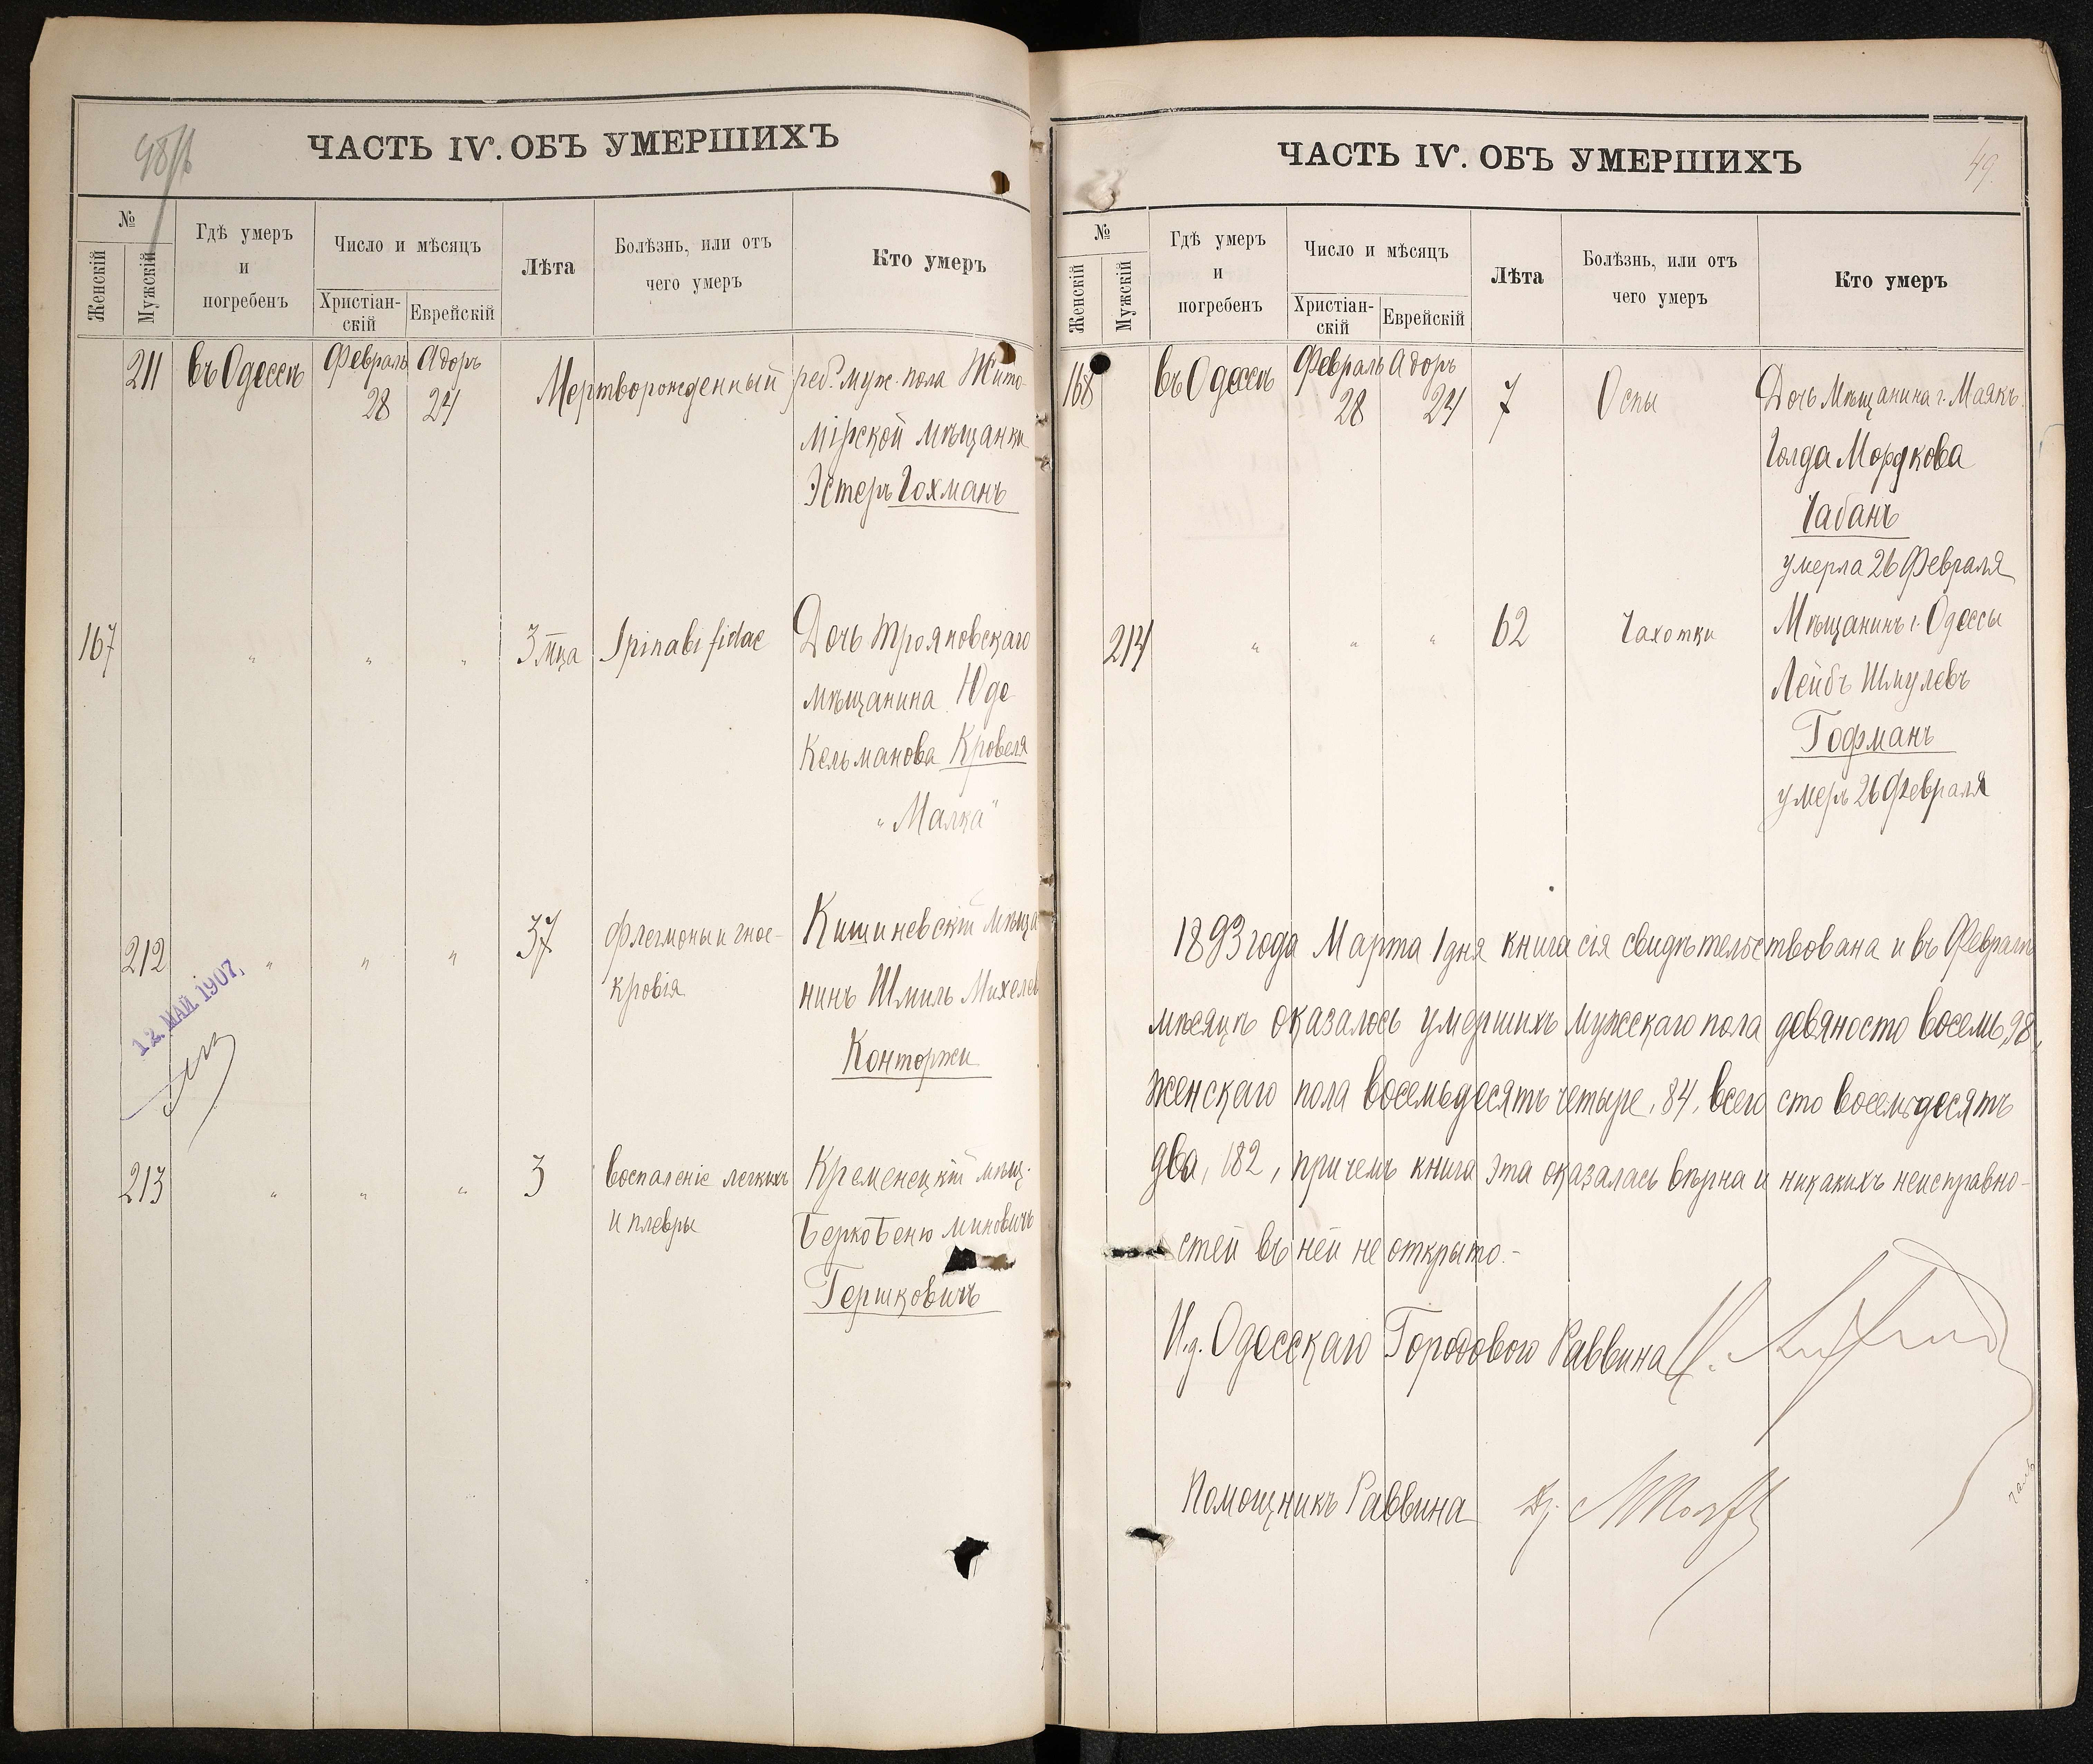 48 об
ЧАСТЬ IV. ОБЪ УМЕРШИХЪ
№
Женскій
Мужскій
Гдѣ умеръ
и
погребенъ
Число и мѣсяцъ
Христіан-
скій
Еврейскій
Лѣта
Болѣзнь, или отъ
чего умеръ
Кто умеръ
211 въ Одессѣ Февраль 28 Адоръ 24 Мертворожденный реб. муж. пола Жито-
мірской мѣщанки
Эстеръ Гохманъ
167 " " " 3 мца Spinabifidae Дочь Трояновскаго
мѣщанина Юде
Кельманова Кровеля
"Малка"
212 " " " 37 флегмоны и гное- Кишиневскій мѣща
кровія нинъ Шмиль Михелев
Конторжи
12. МАЙ 1907.
213 " " " 3 воспаленіе легкихъ Кременецкій мѣщ.
и плевры Берко Беню миновичъ
Гершковичъ
ЧАСТЬ IV. ОБЪ УМЕРШИХЪ
49
№
Женскій
Мужскій
Гдѣ умеръ
и
погребенъ
Число и мѣсяцъ
Христіан-
скій
Еврейскій
Лѣта
Болѣзнь, или отъ
чего умеръ
Кто умеръ
168 въ Одессѣ Февраль 28 Адоръ 24 7 Оспы Дочь Мѣщанина г. Маякъ
Голда Мордкова
Чабанъ
умерла 26 Февраля
214 " " " 62 Чахотки Мѣщанинъ г. Одессы
Лейбъ Шмулевъ
Гофманъ
умеръ 26 Февраля
1893 года Марта 1 дня книга сія свидѣтельствована и въ Февралѣ
мѣсяцѣ оказалось умершихъ мужскаго пола девяносто восемь, 98,
женскаго пола восемьдесятъ четыре, 84, всего сто восемьдесятъ
два, 182, причемъ книга эта оказалась вѣрна и никакихъ неисправно-
стей въ ней не открыто.-
И.д. Одесскаго Городового Раввина
Помощникъ Раввина